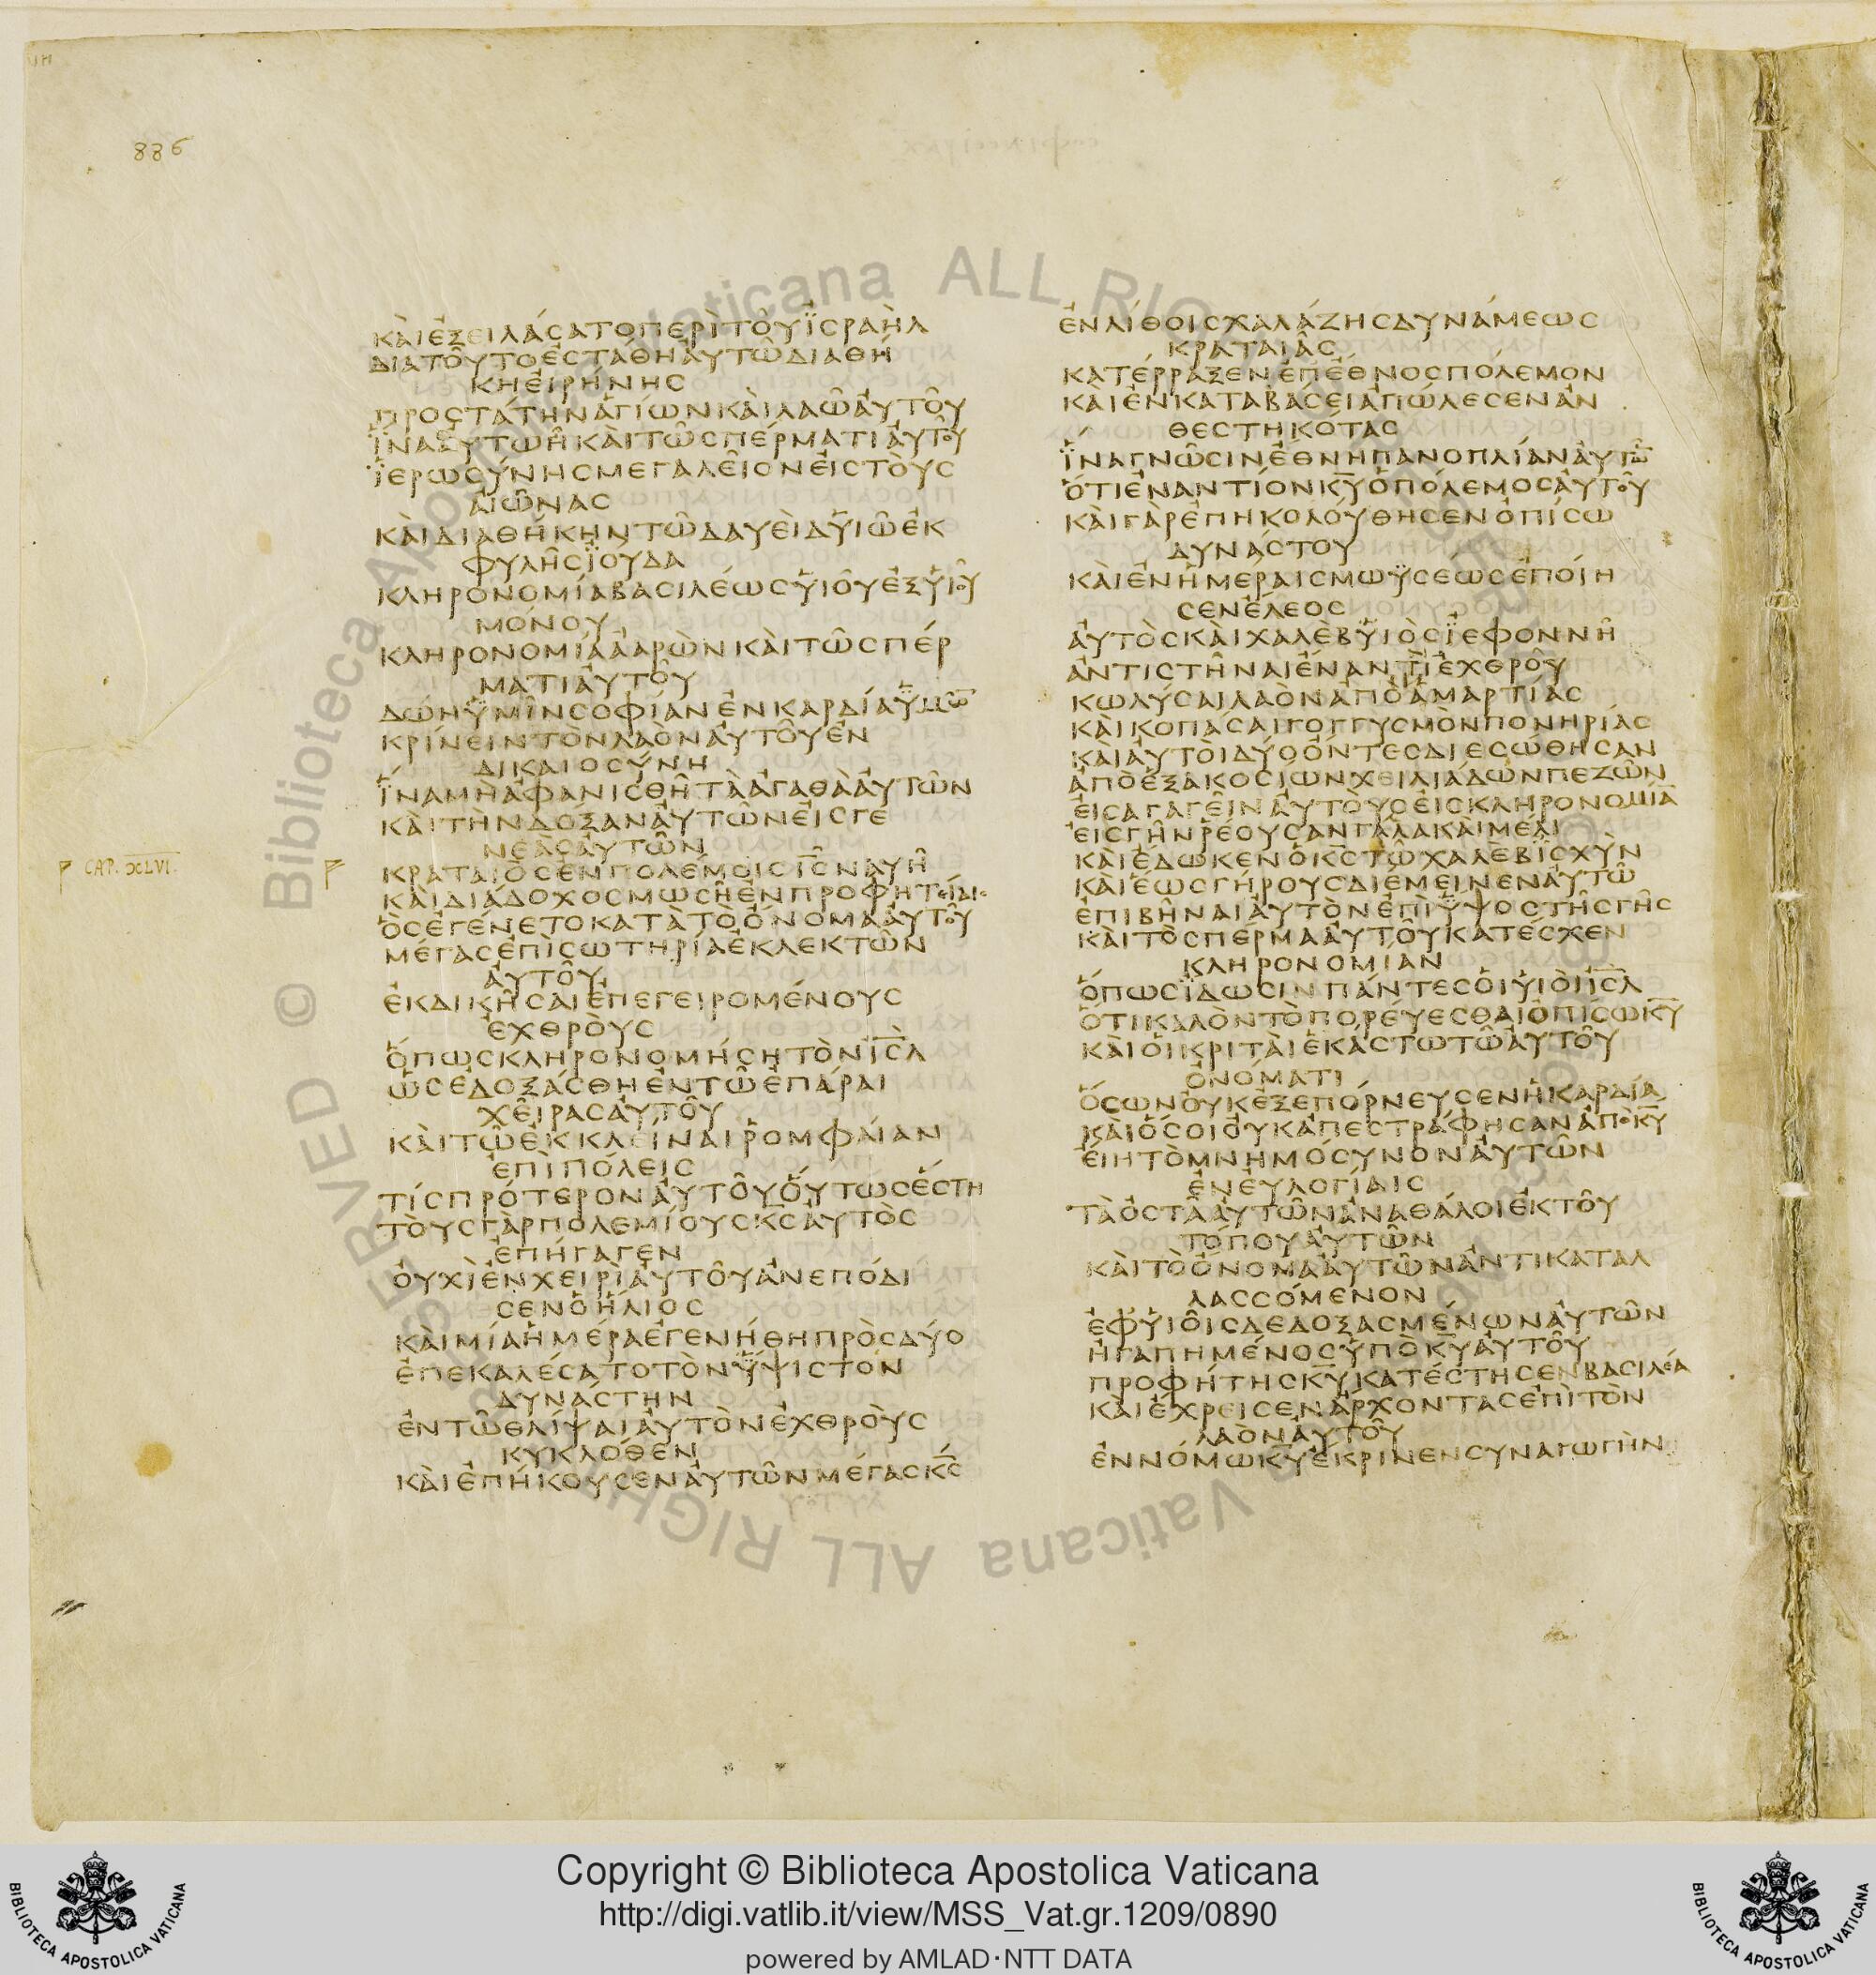 836
ΚΑΙΕΞΕΙΛΑϹΑΤΟΠΕΡΙΤΟΥΙϹΡΑΗΛ
ΔΙΑΤΟΥΤΟΕϹΤΑΘΗΑΥΤΩΔΙΑΘΗ
ΚΗΕΙΡΗΝΗϹ
ΠΡΟϹΤΑΤΗΝΑΓΙΩΝΚΑΙΛΑΩΑΥΤΟΥ
ΙΝΑΑΥΤΩΗΚΑΙΤΩϹΠΕΡΜΑΤΙΑΥΤΟΥ
ΙΕΡΩϹΥΝΗϹΜΕΓΑΛΕΙΟΝΕΙϹΤΟΥϹ
ΑΙΩΝΑϹ
ΚΑΙΔΙΑΘΗΚΗΝΤΩΔΑΥΕΙΔΥΙΩΕΚ
ΦΥΛΗϹΙΟΥΔΑ
ΚΛΗΡΟΝΟΜΙΑΒΑϹΙΛΕΩϹΥΙΟΥΕΞΥΙΟΥ
ΜΟΝΟΥ
ΚΛΗΡΟΝΟΜΙΑΑΑΡΩΝΚΑΙΤΩϹΠΕΡ
ΜΑΤΙΑΥΤΟΥ
ΔΩΗΥΜΙΝϹΟΦΙΑΝΕΝΚΑΡΔΙΑΥΜΩ̅
ΚΡΙΝΕΙΝΤΟΝΛΑΟΝΑΥΤΟΥΕΝ
ΔΙΚΑΙΟϹΥΝΗ
ΙΝΑΜΗΑΦΑΝΙϹΘΗΤΑΑΓΑΘΑΑΥΤΩΝ
ΚΑΙΤΗΝΔΟΞΑΝΑΥΤΩΝΕΙϹΓΕ
ΝΕΑϹΑΥΤΩΝ
CAP. XLVI.
ΚΡΑΤΑΙΟϹΕΝΠΟΛΕΜΟΙϹΙ̅Ϲ̅ΝΑΥΗ
ΚΑΙΔΙΑΔΟΧΟϹΜΩϹΗΕΝΠΡΟΦΗΤΕΙΑΙϹ
ΟϹΕΓΕΝΕΤΟΚΑΤΑΤΟΟΝΟΜΑΑΥΤΟΥ
ΜΕΓΑϹΕΠΙϹΩΤΗΡΙΑΕΚΛΕΚΤΩΝ
ΑΥΤΟΥ
ΕΚΔΙΚΗϹΑΙΕΠΕΓΕΙΡΟΜΕΝΟΥϹ
ΕΧΘΡΟΥϹ
ΟΠΩϹΚΛΗΡΟΝΟΜΗϹΗΤΟΝΙ̅Ϲ̅Λ
ΩϹΕΔΟΞΑϹΘΗΕΝΤΩΕΠΑΡΑΙ
ΧΕΙΡΑϹΑΥΤΟΥ
ΚΑΙΤΩΕΚΚΛΕΙΝΑΙΡΟΜΦΑΙΑΝ
ΕΠΙΠΟΛΕΙϹ
ΤΙϹΠΡΟΤΕΡΟΝΑΥΤΟΥΟΥΤΩϹΕϹΤΗ
ΤΟΥϹΓΑΡΠΟΛΕΜΙΟΥϹΚ̅Ϲ̅ΑΥΤΟϹ
ΕΠΗΓΑΓΕΝ
ΟΥΧΙΕΝΧΕΙΡΙΑΥΤΟΥΑΝΕΠΟΔΙ
ϹΕΝΟΗΛΙΟϹ
ΚΑΙΜΙΑΗΜΕΡΑΕΓΕΝΗΘΗΠΡΟϹΔΥΟ
ΕΠΕΚΑΛΕϹΑΤΟΤΟΝΥΨΙϹΤΟΝ
ΔΥΝΑϹΤΗΝ
ΕΝΤΩΘΛΙΨΑΙΑΥΤΟΝΕΧΘΡΟΥϹ
ΚΥΚΛΟΘΕΝ
ΚΑΙΕΠΗΚΟΥϹΕΝΑΥΤΩΝΜΕΓΑϹΚ̅Ϲ̅
ΕΝΛΙΘΟΙϹΧΑΛΑΖΗϹΔΥΝΑΜΕΩϹ
ΚΡΑΤΑΙΑϹ
ΚΑΤΕΡΡΑΞΕΝΕΠΕΘΝΟϹΠΟΛΕΜΟΝ
ΚΑΙΕΝΚΑΤΑΒΑϹΕΙΑΠΩΛΕϹΕΝΑΝ
ΘΕϹΤΗΚΟΤΑϹ
ΙΝΑΓΝΩϹΙΝΕΘΝΗΠΑΝΟΠΛΙΑΝΑΥΤΩ̅
ΟΤΙΕΝΑΝΤΙΟΝΚ̅Υ̅ΟΠΟΛΕΜΟϹΑΥΤΟΥ
ΚΑΙΓΑΡΕΠΗΚΟΛΟΥΘΗϹΕΝΟΠΙϹΩ
ΔΥΝΑϹΤΟΥ
ΚΑΙΕΝΗΜΕΡΑΙϹΜΩΥϹΕΩϹΕΠΟΙΗ
ϹΕΝΕΛΕΟϹ
ΑΥΤΟϹΚΑΙΧΑΛΕΒΥΙΟϹΙΕΦΟΝΝΗ
ΑΝΤΙϹΤΗΝΑΙΕΝΑΝΤΙΕΧΘΡΟΥ
ΚΩΛΥϹΑΙΛΑΟΝΑΠΟΑΜΑΡΤΙΑϹ
ΚΑΙΚΟΠΑϹΑΙΓΟΓΓΥϹΜΟΝΠΟΝΗΡΙΑϹ
ΚΑΙΑΥΤΟΙΔΥΟΟΝΤΕϹΔΙΕϹΩΘΗϹΑΝ
ΑΠΟΕΞΑΚΟϹΙΩΝΧΕΙΛΙΑΔΩΝΠΕΖΩΝ
ΕΙϹΑΓΑΓΕΙΝΑΥΤΟΥϹΕΙϹΚΛΗΡΟΝΟΜΙΑ̅
ΕΙϹΓΗΝΡΕΟΥϹΑΝΓΑΛΑΚΑΙΜΕΛΙ
ΚΑΙΕΔΩΚΕΝΟΚ̅Ϲ̅ΤΩΧΑΛΕΒΙϹΧΥΝ
ΚΑΙΕΩϹΓΗΡΟΥϹΔΙΕΜΕΙΝΕΝΑΥΤΩ
ΕΠΙΒΗΝΑΙΑΥΤΟΝΕΠΙΥΨΟϹΤΗϹΓΗϹ
ΚΑΙΤΟϹΠΕΡΜΑΑΥΤΟΥΚΑΤΕϹΧΕΝ
ΚΛΗΡΟΝΟΜΙΑΝ
ΟΠΩϹΙΔΩϹΙΝΠΑΝΤΕϹΟΙΥΙΟΙΙ̅Ϲ̅Λ
ΟΤΙΚΑΛΟΝΤΟΠΟΡΕΥΕϹΘΑΙΟΠΙϹΩΚ̅Υ̅
ΚΑΙΟΙΚΡΙΤΑΙΕΚΑϹΤΩΤΩΑΥΤΟΥ
ΟΝΟΜΑΤΙ
ΟϹΩΝΟΥΚΕΞΕΠΟΡΝΕΥϹΕΝΗΚΑΡΔΙΑ
ΚΑΙΟϹΟΙΟΥΚΑΠΕϹΤΡΑΦΗϹΑΝΑΠΟΚ̅Υ̅
ΕΙΗΤΟΜΝΗΜΟϹΥΝΟΝΑΥΤΩΝ
ΕΝΕΥΛΟΓΙΑΙϹ
ΤΑΟϹΤΑΑΥΤΩΝΑΝΑΘΑΛΟΙΕΚΤΟΥ
ΤΟΠΟΥΑΥΤΩΝ
ΚΑΙΤΟΟΝΟΜΑΑΥΤΩΝΑΝΤΙΚΑΤΑΛ
ΛΑϹϹΟΜΕΝΟΝ
ΕΦΥΙΟΙϹΔΕΔΟΞΑϹΜΕΝΩΝΑΥΤΩΝ
ΗΓΑΠΗΜΕΝΟϹΥΠΟΚ̅Υ̅ΑΥΤΟΥ
ΠΡΟΦΗΤΗϹΚ̅Υ̅ΚΑΤΕϹΤΗϹΕΝΒΑϹΙΛΕΑ
ΚΑΙΕΧΡΕΙϹΕΝΑΡΧΟΝΤΑϹΕΠΙΤΟΝ
ΛΑΟΝΑΥΤΟΥ
ΕΝΝΟΜΩΚ̅Υ̅ΕΚΡΙΝΕΝϹΥΝΑΓΩΓΗΝ
Copyright © Biblioteca Apostolica Vaticana
http://digi.vatlib.it/view/MSS_Vat.gr.1209/0890
powered by AMLAD·NTT DATA
BIBLIOTECA APOSTOLICA VATICANA
BIBLIOTECA APOSTOLICA VATICANA